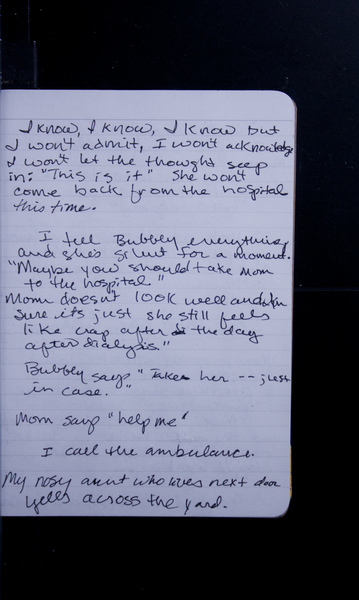 I know, I know, I know but
I won't admit, I won't acknowledge
I won't let the thought seep
in: "This is it" She won't
come back from the hospital
this time.
I tell Bubbey everything
and she's silent for a moment.
"Maybe you should take mom
to the hospital."
Mom doesn't look well and I'm
sure it's just she still feels
like crap after the day
after dialysis."
Bubbey says "Take her -- just
in case."
Mom says "help me"
I call the ambulance.
My nosy aunt who lives next door
yells across the yard.